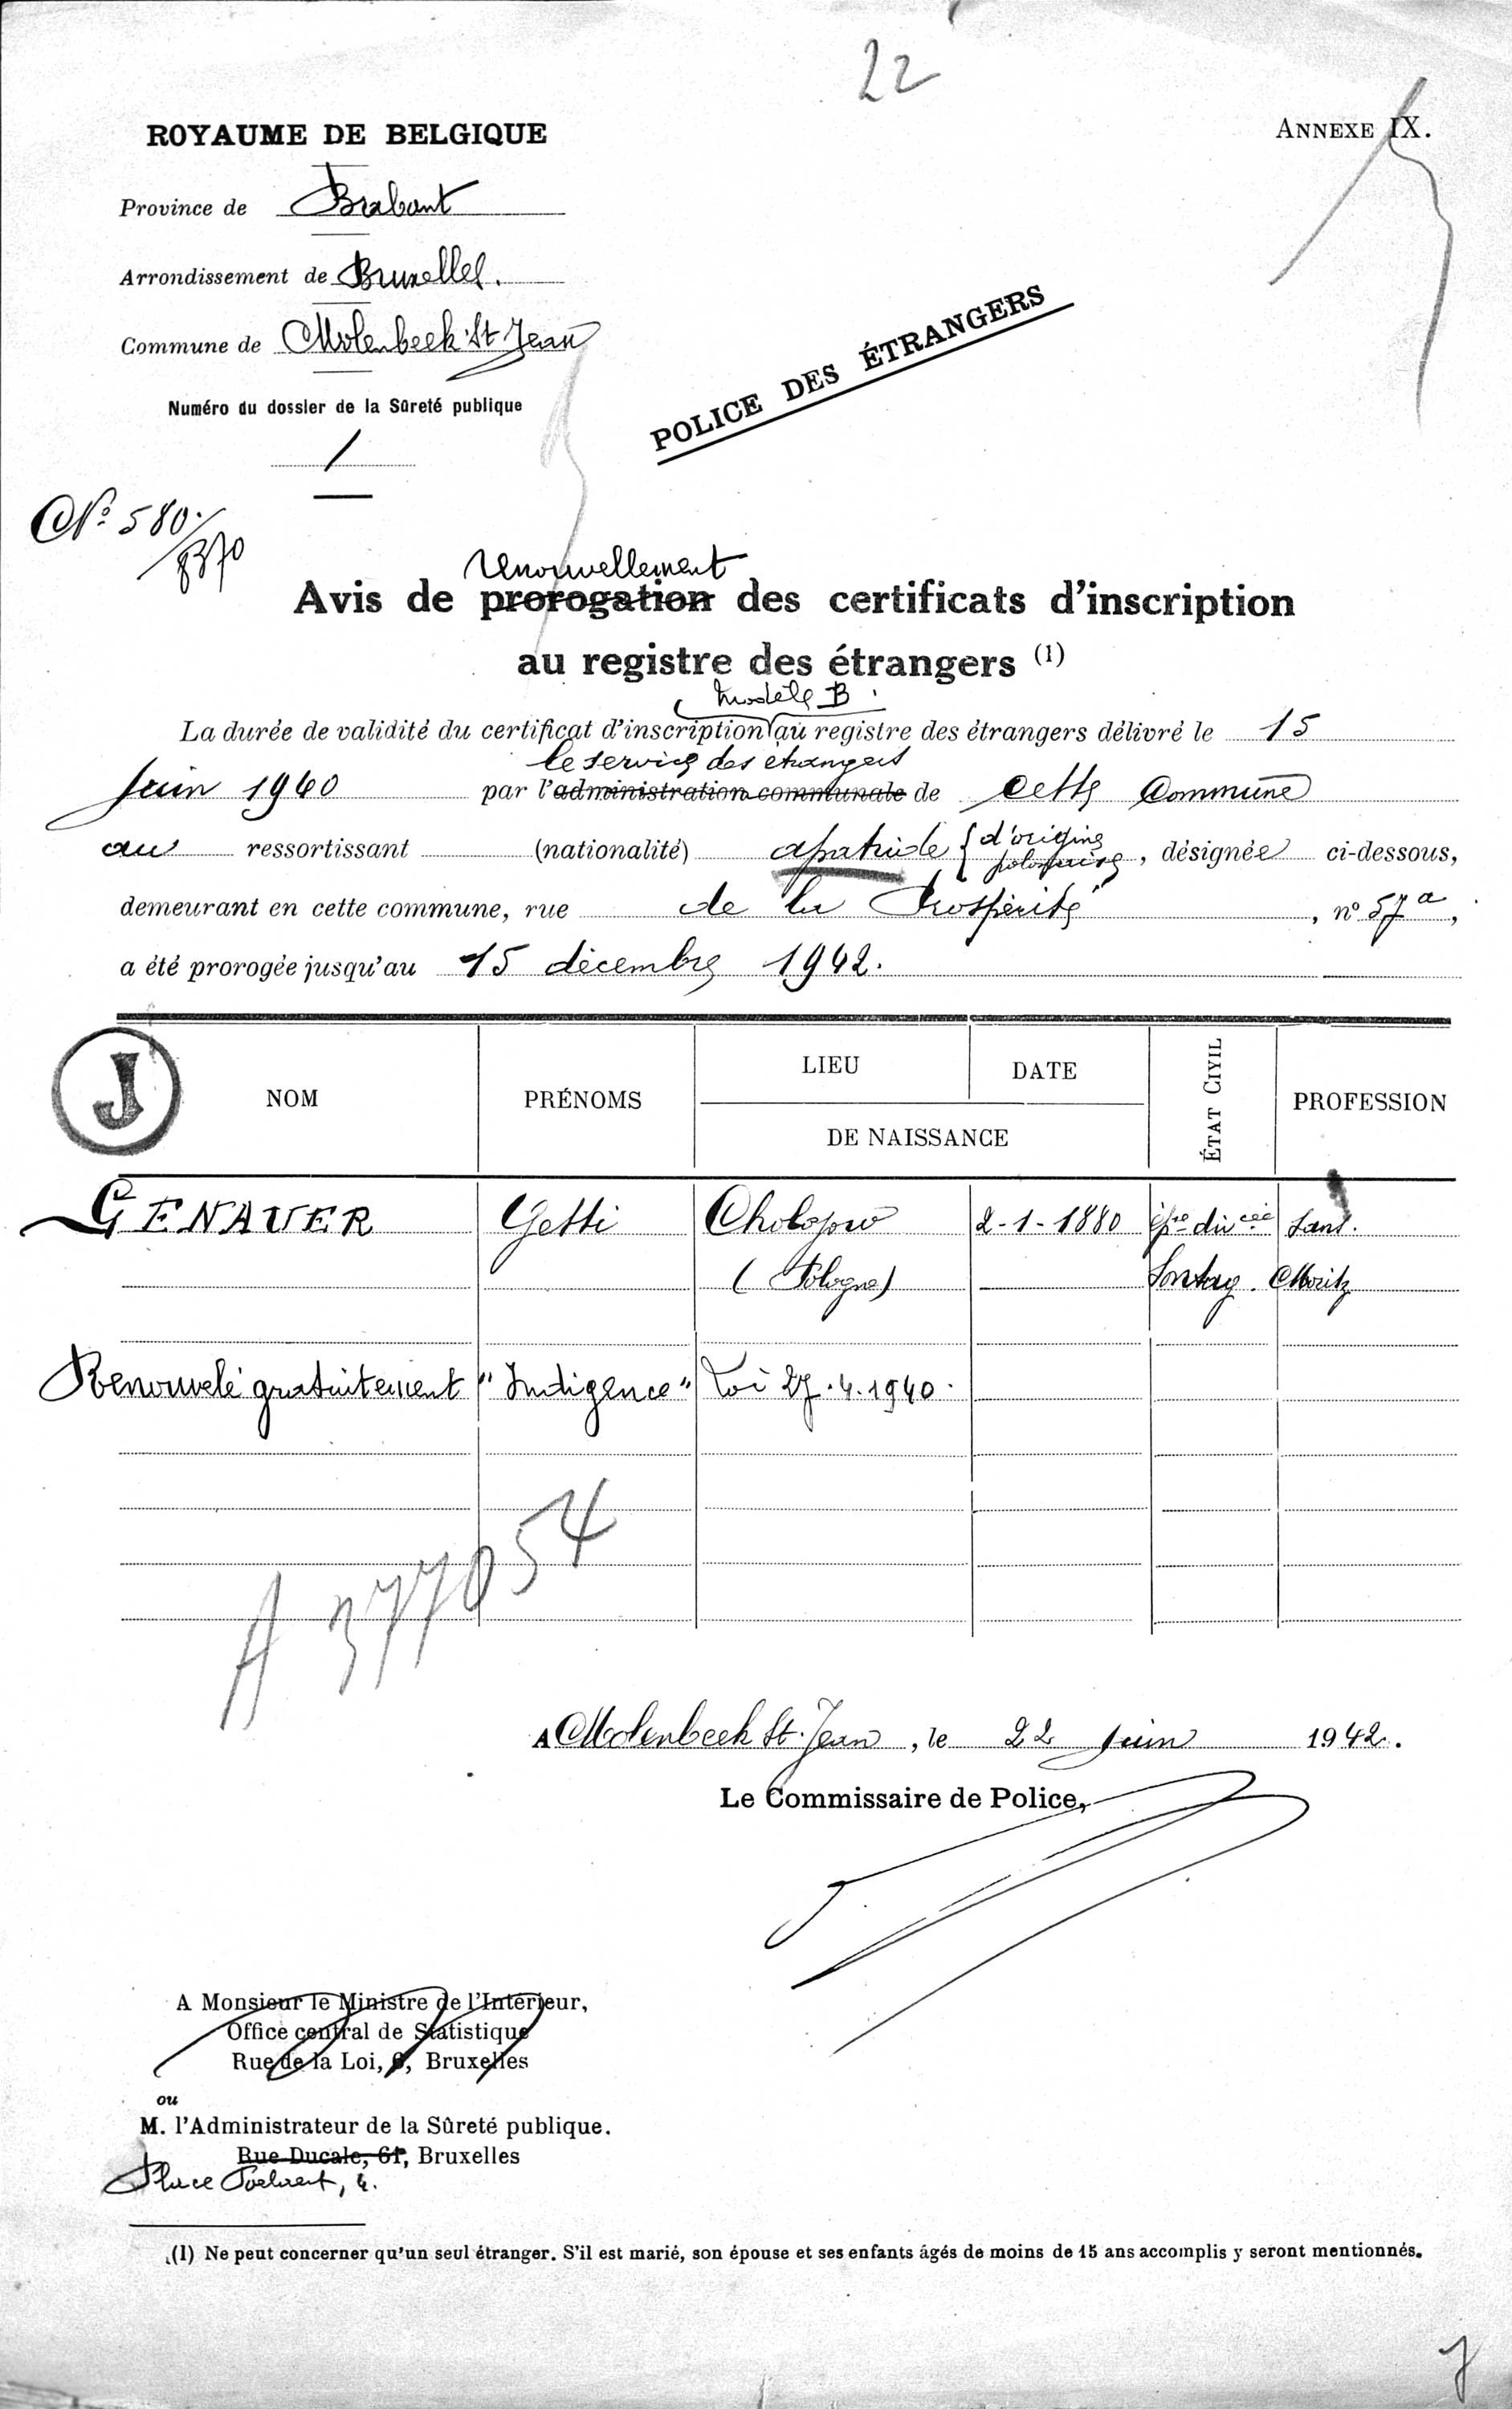 22
ROYAUME DE BELGIQUE
ANNEXE IX.
Province de Brabant
Arrondissement de Bruxelles.
Commune de Molenbeek-St-Jean
Numéro du dossier de la Sûreté publique
/
POLICE DES ÉTRANGERS
N° 580.
8370
renouvellement
Avis de prorogation des certificats d'inscription
au registre des étrangers (1)
modèle B
La durée de validité du certificat d'inscription au registre des étrangers délivré le 15
le service des étrangers
juin 1940 par l'administration communale de cette commune
au ressortissant (nationalité) apatride { d'origine polonaise, désignée ci-dessous,
demeurant en cette commune, rue de la Prospérité, n° 57a,
a été prorogée jusqu'au 15 décembre 1942.
J
NOM PRÉNOMS LIEU DATE DE NAISSANCE ÉTAT CIVIL PROFESSION
GENAUER Getti Cholojow 2-1-1880 épse divcée sans.
(Pologne) Sontag. Moritz
Renouvelé gratuitement "Indigence" Loi 27.4.1940.
A 377054
A Molenbeek St. Jean, le 22 juin 1942.
Le Commissaire de Police,
A Monsieur le Ministre de l'Intérieur,
Office central de Statistique
Rue de la Loi, 6, Bruxelles
ou
M. l'Administrateur de la Sûreté publique.
Rue Ducale, 61, Bruxelles
Place Poelaert, 4.
(1) Ne peut concerner qu'un seul étranger. S'il est marié, son épouse et ses enfants âgés de moins de 15 ans accomplis y seront mentionnés.